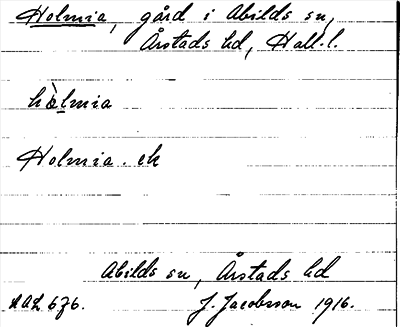 Holmia, gård i Abilds sn,
Årstads hd, Hall. l.
hòlmia
Holmia. ek
Abilds sn, Årstads hd
AAL 676. J. Jacobsson 1916.